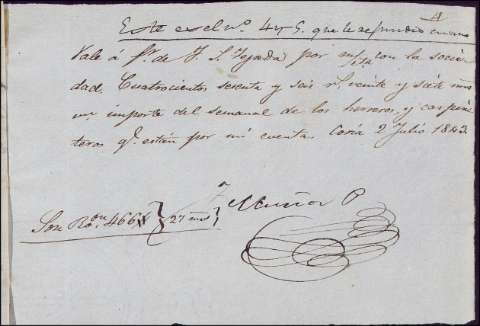 A
Este es el nº. 4 y 5. que le refundió en uno
Vale á fr. de J. S. Tejada por m/cta con la socie-
dad. Cuatrocientos sesenta y seis rs. veinte y siete mrs
importe del semanal de los herreros y carpin-
teros q. están por mi cuenta. Coria 2 Julio 1843.
J. Muñoz P
Son Rs. on 466 } 27 mrs }